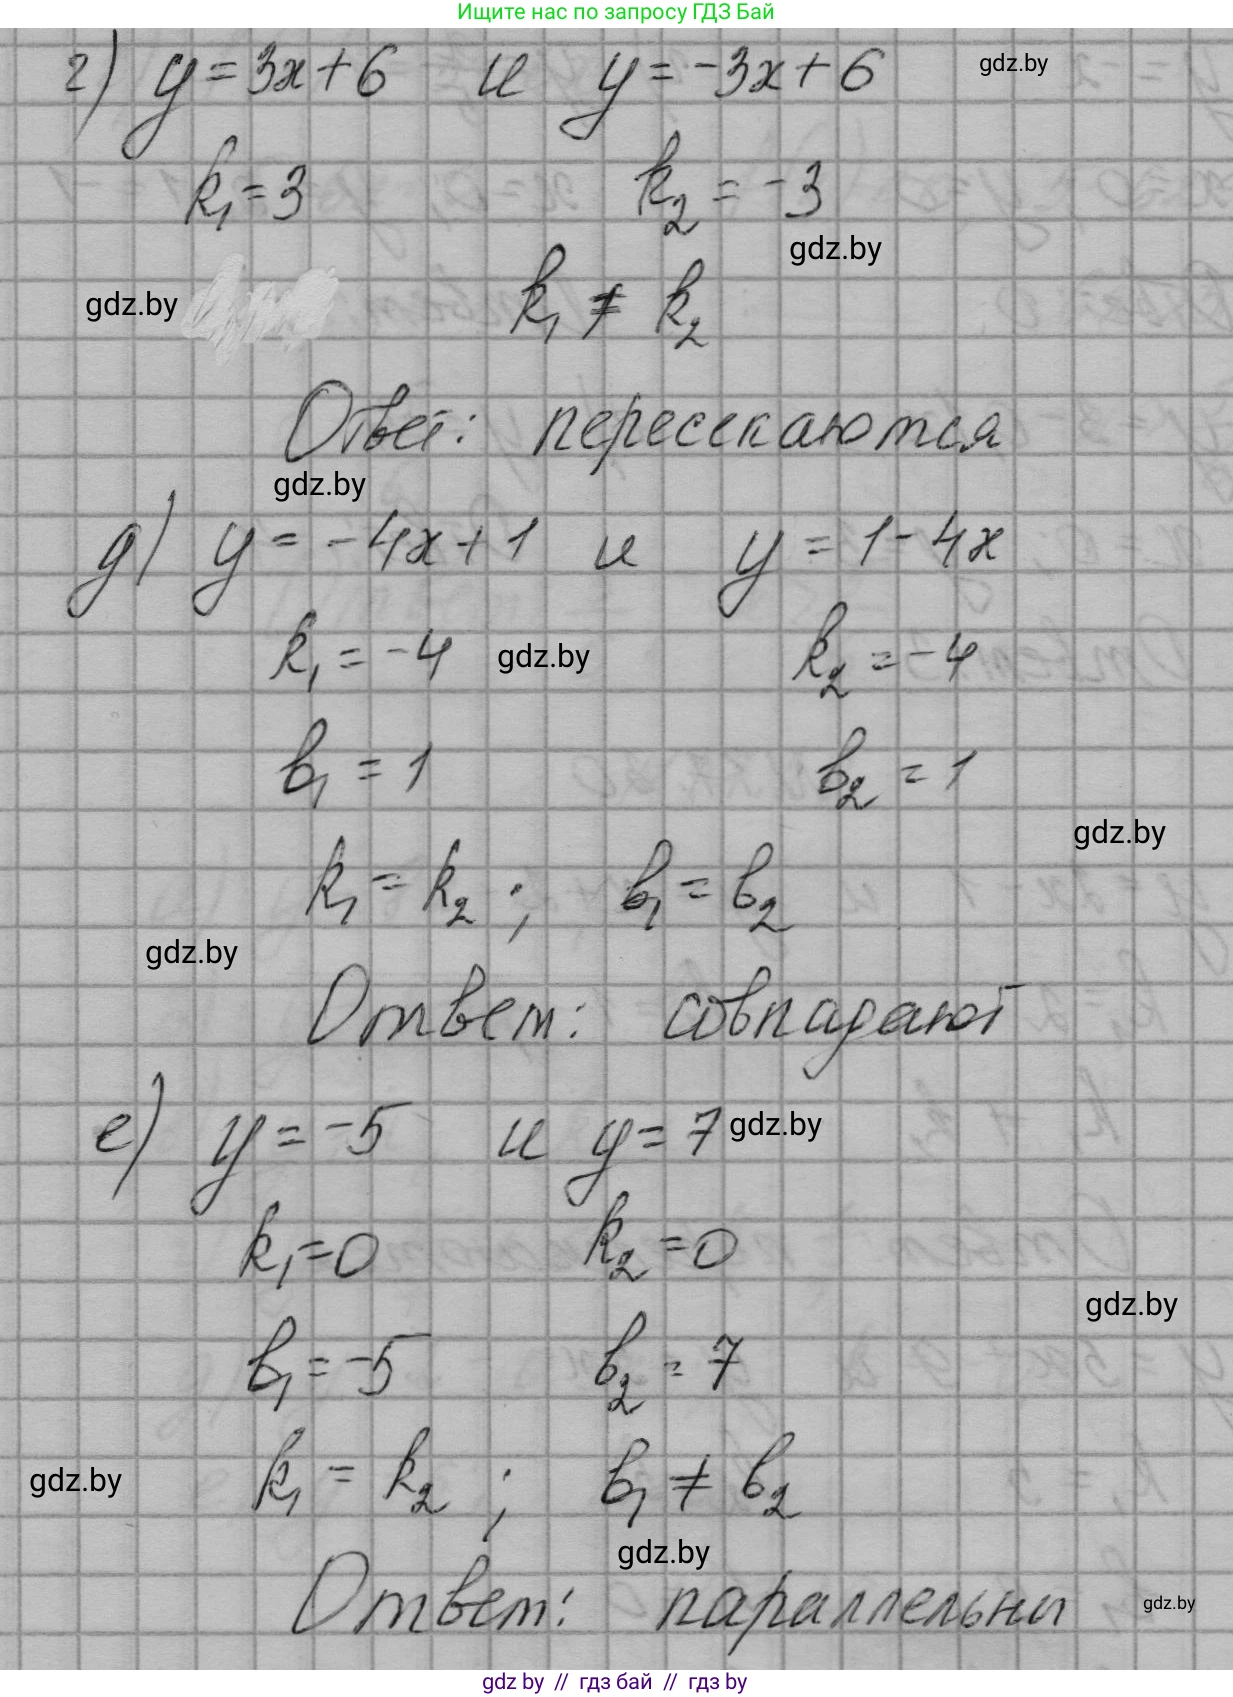 Ищите нас по запросу ГДЗ Бай
г) y = 3x + 6 и y = -3x + 6 gdz.by
k₁ = 3 k₂ = -3
gdz.by
gdz.by k₁ ≠ k₂
Ответ: пересекаются
gdz.by
д) y = -4x + 1 и y = 1 - 4x
k₁ = -4 gdz.by k₂ = -4
b₁ = 1 b₂ = 1
gdz.by
k₁ = k₂ ; b₁ = b₂
gdz.by
Ответ: совпадают
е) y = -5 и y = 7 gdz.by
k₁ = 0 k₂ = 0
gdz.by
b₁ = -5 b₂ = 7
gdz.by k₁ = k₂ ; b₁ ≠ b₂
gdz.by
Ответ: параллельны gdz.by
gdz by // гдз бай // gdz by